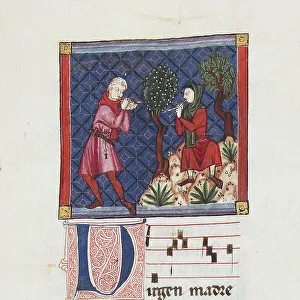 Uirgen madre